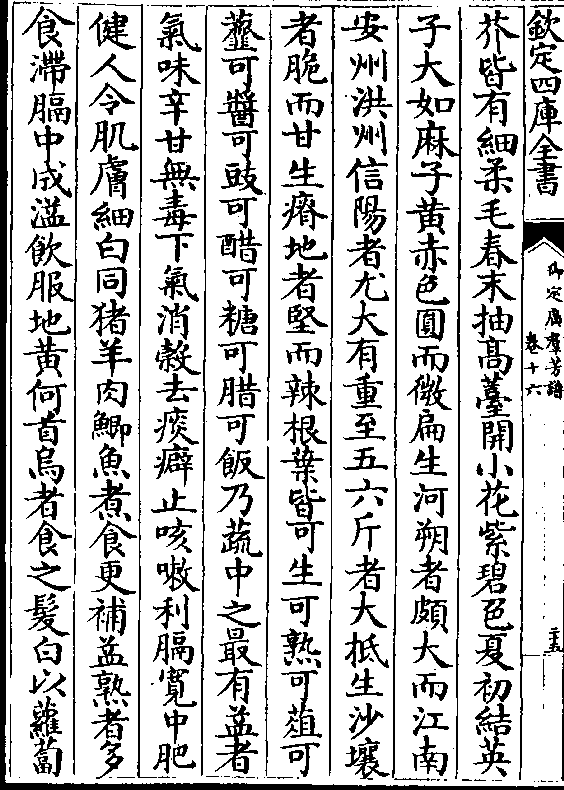 欽定四庫全書
御定廣羣芳譜
卷十六
二十五
芥皆有細柔毛春末抽髙薹開小花紫碧色夏初結英
子大如麻子黄赤色圓而微扁生河朔者頗大而江南
安州洪州信陽者尤大有重至五六斤者大抵生沙壤
者脆而甘生瘠地者堅而辣根葉皆可生可熟可葅可
虀可醬可豉可醋可糖可腊可飯乃蔬中之最有益者
氣味辛甘無毒下氣消榖去痰癖止咳嗽利膈寛中肥
健人令肌膚細白同猪羊肉鯽魚煮食更補益熟者多
食滯膈中成溢飲服地黄何首烏者食之髮白以蘿蔔